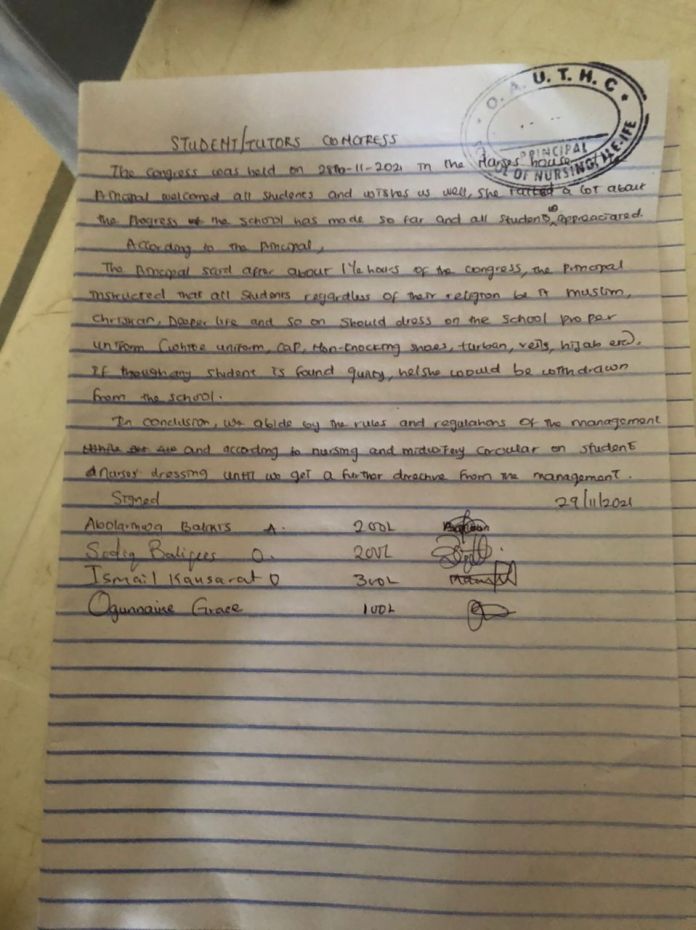 O.A.U.T.H.C
PRINCIPAL
OF NURSING, ILE-IFE
STUDENT/TUTORS CONGRESS
The Congress was held on 28th-11-2021 in the Nurses house
Principal welcomed all students and wishes us well, she talked a lot about
the Progress the school has made so far and all students appreciated.
According to the Principal,
The Principal said after about 1½ hours of the congress, the Principal
instructed that all students regardless of their religion be it muslim,
Christian, Deeper life and so on should dress on the school proper
uniform (white uniform, cap, Non-knocking shoes, turban, veils, hijab etc).
If though any student is found guilty, he/she would be withdrawn
from the school.
In conclusion, we abide by the rules and regulations of the management
and according to nursing and midwifery circular on student
nurses dressing until we get a further directive from the management.
Signed 29/11/2021
Abolarinwa Balkis A. 200L
Sodiq Balqees O. 200L
Ismail Kausarat O 300L
Ogunnaike Grace 100L